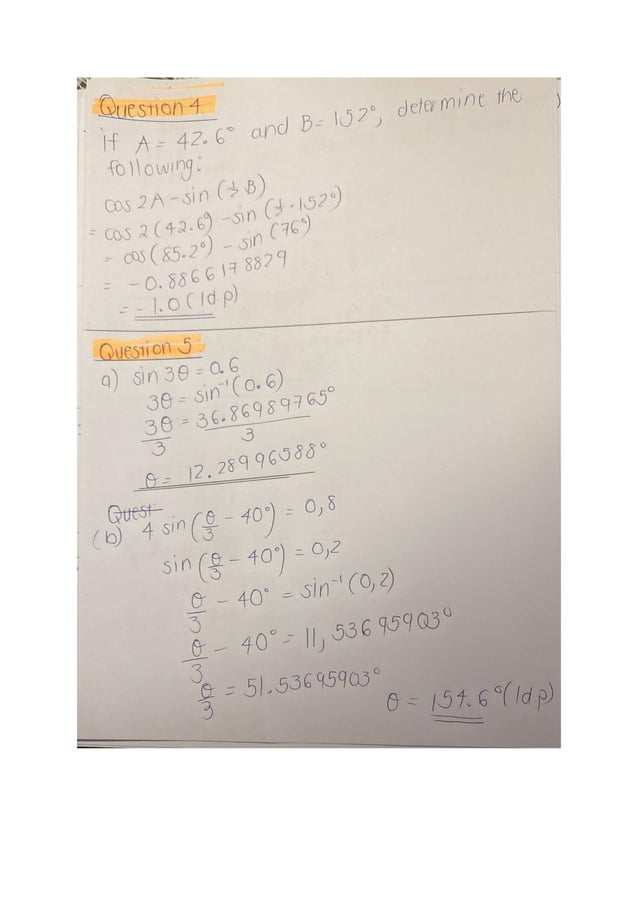 Question 4.
if A = 42.6° and B = 152°, determine the
following:
cos 2A - sin (½ B)
= cos 2 (42.6) - sin (½ · 152°)
= cos (85.2°) - sin (76°)
= - 0.8866178829
= - 1.0 (1d.p)
Question 5:
a) sin 3θ = 0.6
3θ = sin⁻¹ (0.6)
3θ/3 = 36.86989765°/3
θ = 12.28996588°
Quest
(b) 4 sin (θ/3 - 40°) = 0,8
sin (θ/3 - 40°) = 0,2
θ/3 - 40° = sin⁻¹ (0,2)
θ/3 - 40° = 11,53695903°
θ/3 = 51.53695903°
θ = 154.6° (1dp)